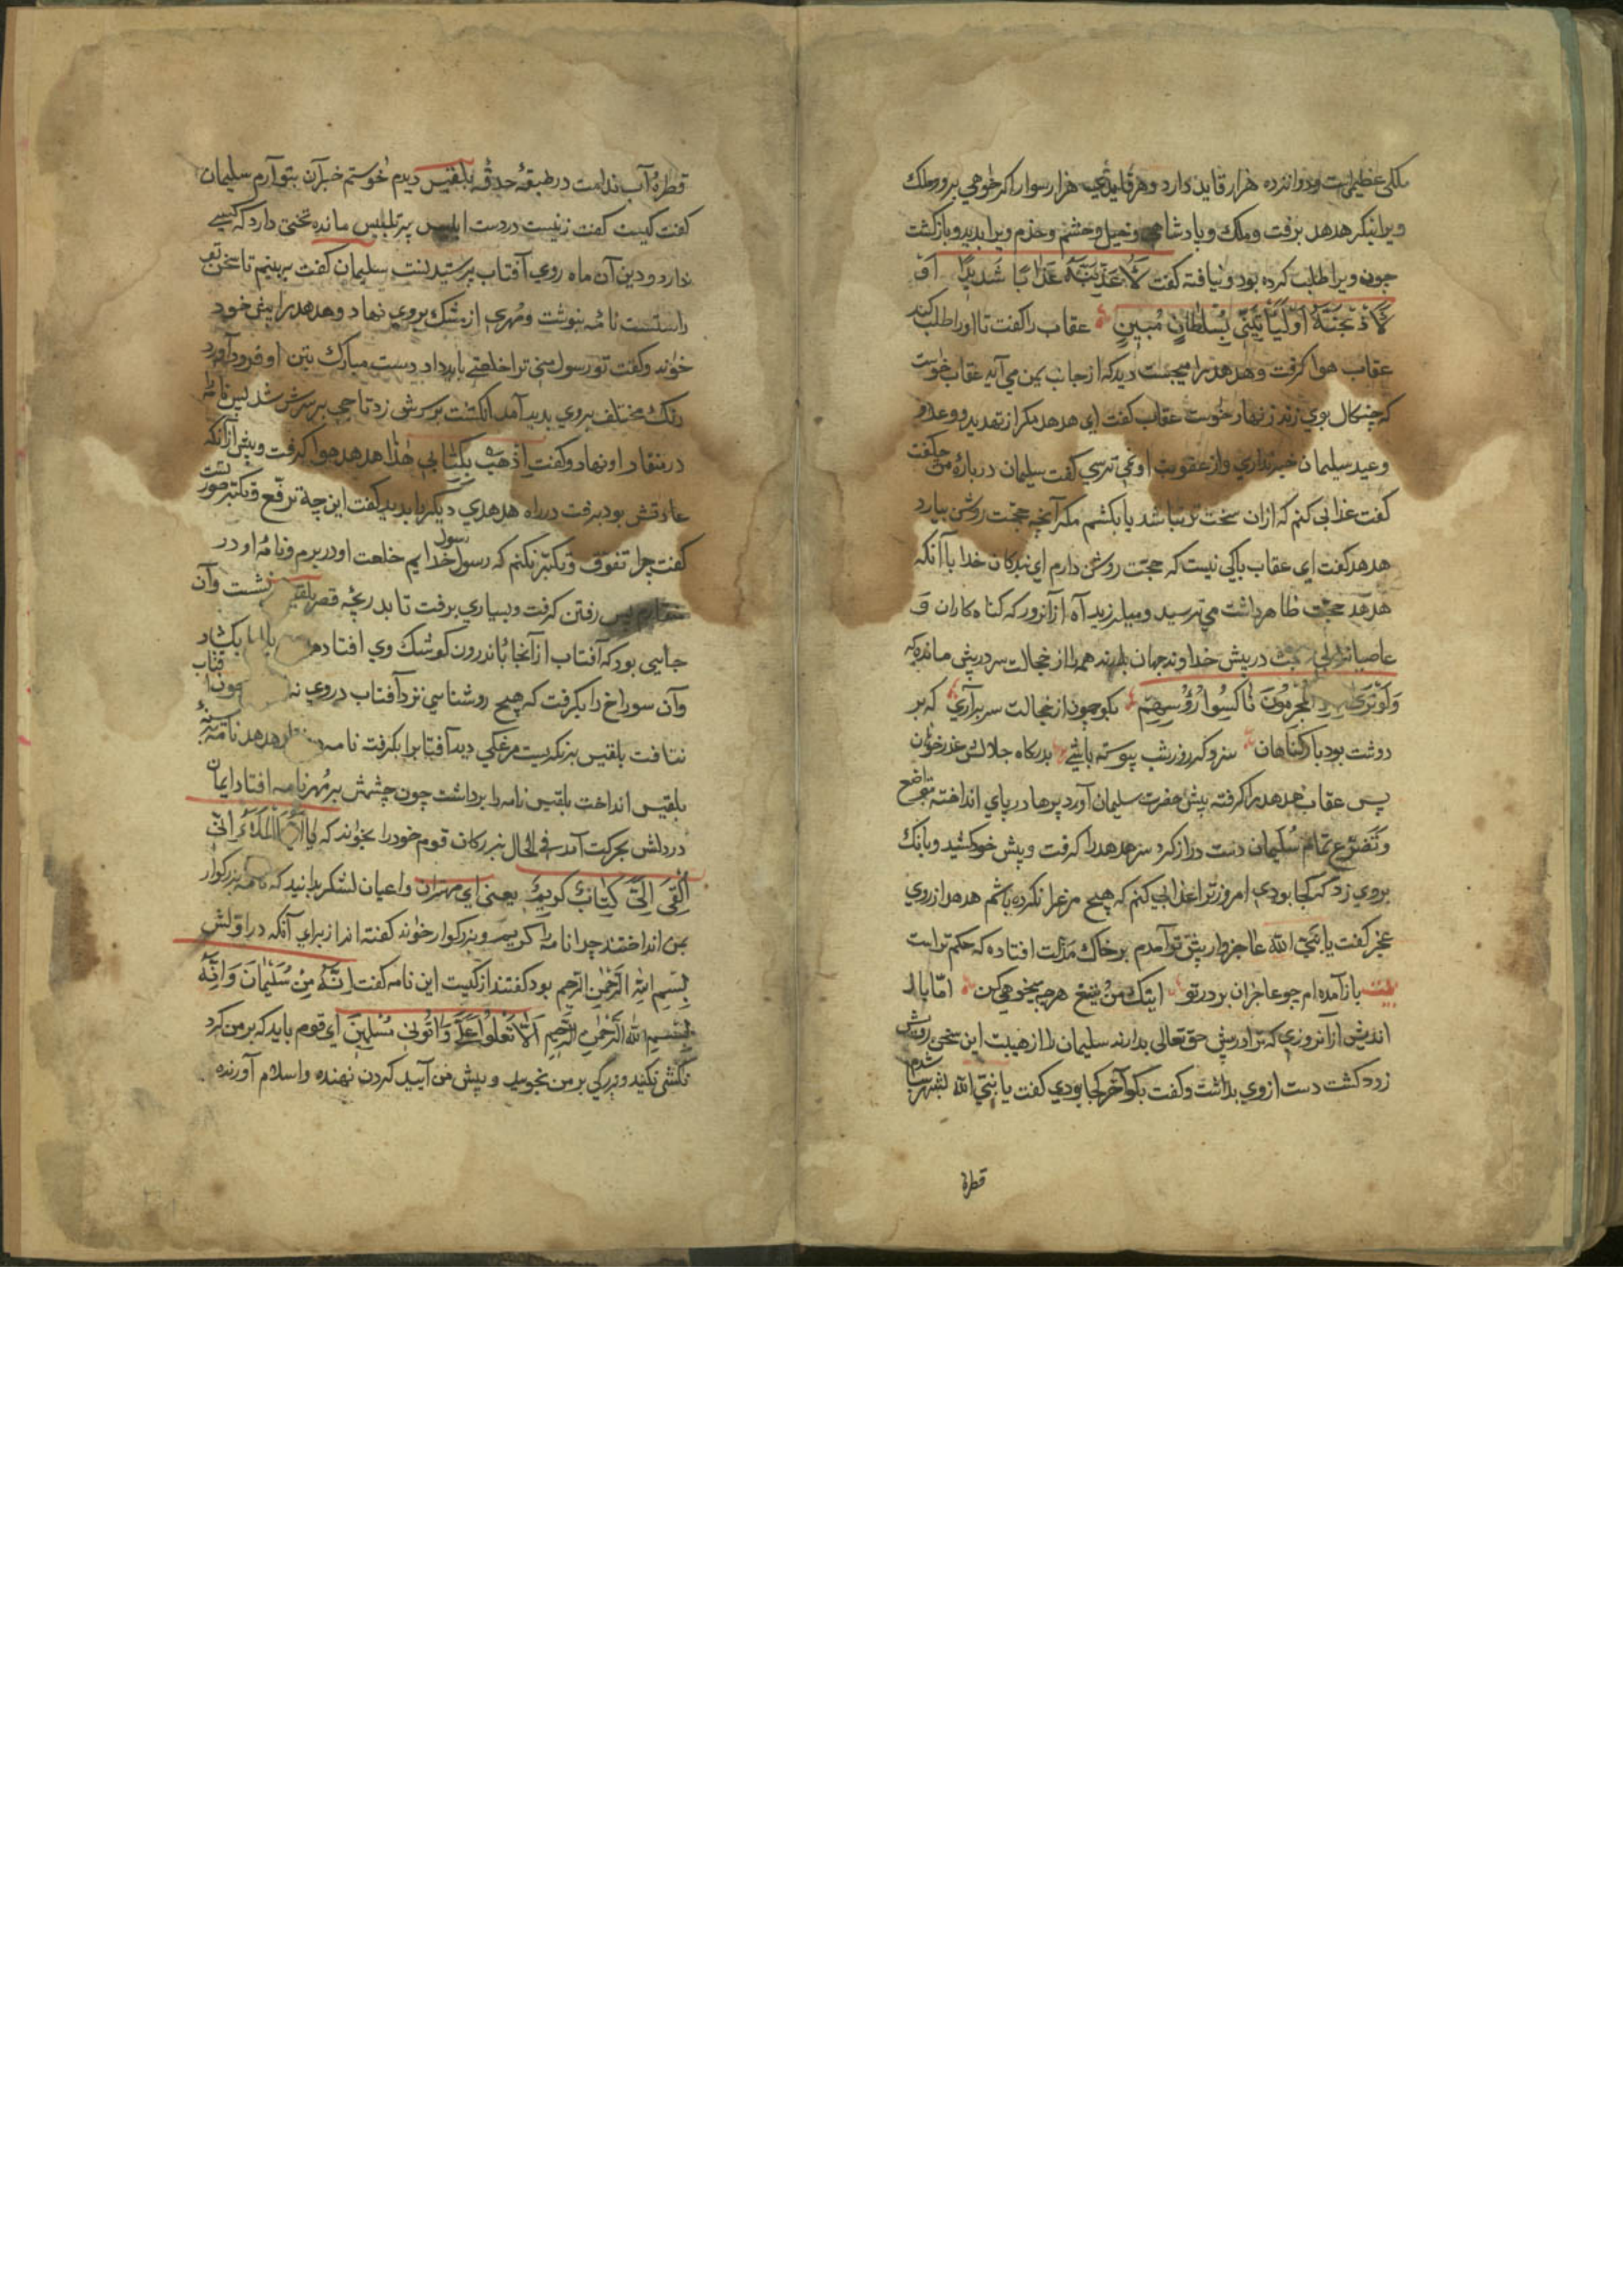 ملکی عظیمست و دوانزده هزار قاید دارد و هر قایدی هزار سوار اکر خواهی برو و ملک
ویرا بنکر هدهد برفت و ملک و پادشاهی و خیل و حشم و خدم ویرا بدید و بازکشت
چون ویرا طلب کرده بود و نیافته کفت لَأُعَذِّبَنَّهُ عَذَابًا شَدِیدًا أَوْ
لَأَذْبَحَنَّهُ أَوْ لَیَأْتِیَنِّی بِسُلْطَانٍ مُبِینٍ عقاب را کفت تا او را طلب کند
عقاب هوا کرفت و هدهد را میجست دید که از جانب یمن می آید عقاب خواست
که چنکال بوی زند زنهار خواست عقاب کفت ای هدهد مکر از تهدید و وعد و
وعید سلیمان خبر نداری و از عقوبت او نمی ترسی کفت سلیمان درباره من چکفت
کفت عذابی کنم که ازان سخت تر نباشد یا بکشم مکر آنچه حجت روشن بیارد
هدهد کفت ای عقاب باکی نیست که حجت روشن دارم ای بندکان خدا با آنکه
هدهد حجت ظاهر داشت می ترسید و میلرزید آه از آنروز که کناه کاران و
عاصیانرا در پیش خداوند جهان بدارند همه از خجالت سر در پیش مانده که
وَلَوْ تَرَی الْمُجْرِمُونَ نَاکِسُوا رُؤُسِهِمْ بکو چون از خجالت سر برآری که بر
دوشت بود بار کناهان سزد کر روز و شب پیوسته باشی بدرکاه جلالش عذرخواهان
پس عقاب هدهد را کرفته پیش حضرت سلیمان آورد پرها در پای انداخته بتواضع
و تضرع تمام سلیمان دست دراز کرد سر هدهد را کرفت و پیش خود کشید و بانک
بروی زد که کجا بودی امروز ترا عذابی کنم که هیچ مرغ را نکرده باشم هدهد از روی
عجز کفت یا نبی الله عاجزوار پیش تو آمدم بر خاک مذلت افتاده که حکم تراست
بیت باز آمده ام چو عاجزان بر در تو اینک من و تیغ هرچه میخواهی کن امّا باد
اندیش از آنروزی که ترا در پیش حق تعالی بدارند سلیمان را از هیبت این سخن روش
زرد کشت دست از وی بداشت و کفت بکو آخر کجا بودی کفت یا نبی الله بشهر سبا شدم
قطرهٔ
قطرهٔ آب ندامت در طبقهٔ حدقهٔ بلقیس دیدم خواستم خبر آن بتو آرم سلیمان
کفت کیست کفت زنیست در دست ابلیس پر تلبیس مانده تختی دارد که کسی
ندارد و دین آن ماه روی آفتاب پرستیدنست سلیمان کفت ببینیم تا سخن تو
راستست نامه بنوشت و مهری از مشک بروی نهاد و هدهد را پیش خود
خواند و کفت تو رسول منی ترا خلعتی باید داد دست مبارک بتن او فرود آورد
رنک مختلف بروی پدید آمد انکشت بر سرش زد تاجی بر سرش شد پس نامه
در منقار او نهاد و کفت اِذْهَبْ بِکِتَابِی هٰذَا هدهد هوا کرفت و پیش از آنکه
عادتش بود برفت در راه هدهدی دیکر را بدید کفت این چه ترفع و تکبر صورتست
کفت چرا تفوق و تکبر نکنم که رسول رسول خدایم خلعت او در برم و نامه او در
منقارم پس رفتن کرفت و بسیاری برفت تا بدریچه قصر بلقیس نشست و آن
جایی بود که آفتاب از آنجا باندرون کوشک وی افتاد بکشاد
و آن سوراخ را بکرفت که هیچ روشنایی نزد آفتاب در وی چون آفتاب
نتافت بلقیس بنکریست مرغکی دید آفتاب را بکرفته نامه هدهد نامه بسینهٔ
بلقیس انداخت بلقیس نامه را برداشت چون چشمش بر مهر نامه افتاد ایمان
در دلش بحرکت آمد فی الحال بزرکان قوم خود را بخواند که یَا أَیُّهَا الْمَلَؤُا إِنِّی
أُلْقِیَ إِلَیَّ کِتَابٌ کَرِیمٌ یعنی ای مهتران و اعیان لشکر بدانید که نامه بزرکوار
بمن انداختند چرا نامه را کریم و بزرکوار خواند کفته اند از برای آنکه در اولش
بِسْمِ اللهِ الرَّحْمٰنِ الرَّحِیمِ بود کفتند از کیست این نامه کفت إِنَّهُ مِنْ سُلَیْمَانَ وَإِنَّهُ
بِسْمِ اللهِ الرَّحْمٰنِ الرَّحِیمِ أَلَّا تَعْلُوا عَلَیَّ وَأْتُونِی مُسْلِمِینَ ای قوم باید که بر من کرد
نکشی نکنید و بزرکی بر من نجویید و پیش من آیید کردن نهنده و اسلام آورنده